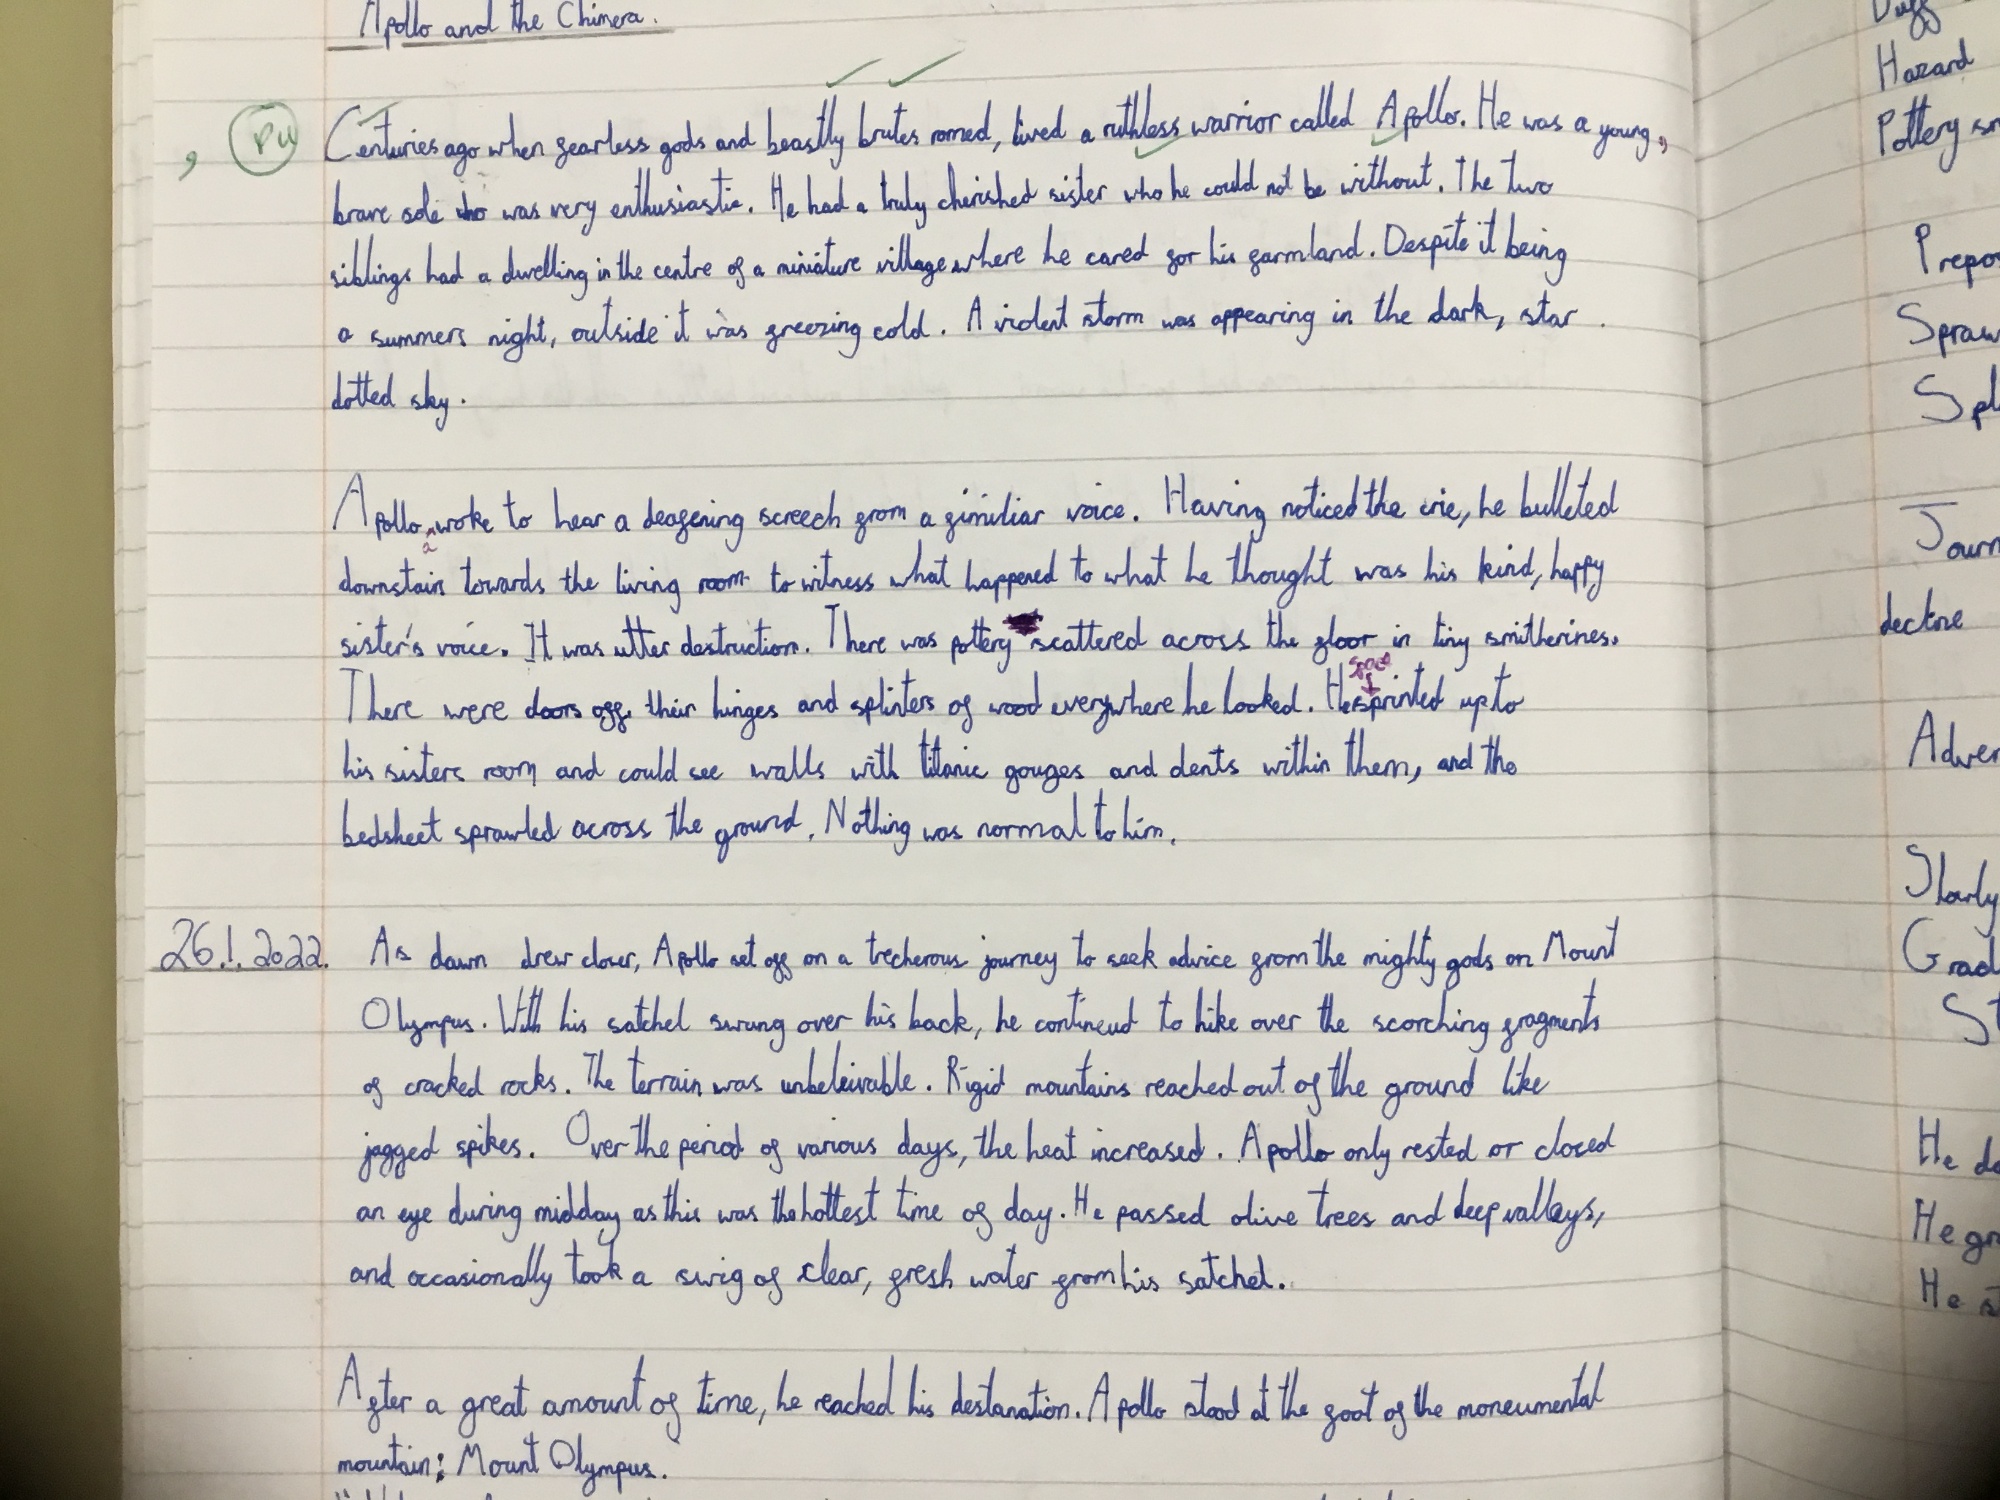 Apollo and the Chimera.
, PU Centuries ago when fearless gods and beastly brutes romed, lived a ruthless warrior called Apollo. He was a young,
brave sole who was very enthusiastic. He had a truly cherished sister who he could not be without. The two
siblings had a dwelling in the centre of a miniature village where he cared for his farmland. Despite it being
a summers night, outside it was freezing cold. A violent storm was appearing in the dark, star
dotted sky.
Apollo awoke to hear a deafening screech from a fimiliar voice. Having noticed the crie, he bulleted
downstairs towards the living room to witness what happened to what he thought was his kind, happy
sister's voice. It was utter destruction. There was pottery scattered across the floor in tiny smitherines.
There were doors off their hinges and splinters of wood everywhere he looked. He sprinted up to
his sisters room and could see walls with titanic gouges and dents within them, and the
bedsheet sprawled across the ground. Nothing was normal to him.
26.1.2022. As dawn drew closer, Apollo set off on a trecherous journey to seek advice from the mighty gods on Mount
Olympus. With his satchel swung over his back, he contineud to hike over the scorching fragments
of cracked rocks. The terrain was unbeleivable. Rigid mountains reached out of the ground like
jagged spikes. Over the period of various days, the heat increased. Apollo only rested or closed
an eye during midday as this was the hottest time of day. He passed olive trees and deep valleys,
and occasionally took a swig of clear, fresh water from his satchel.
After a great amount of time, he reached his destanation. Apollo stood at the foot of the moneumental
mountain: Mount Olympus.
Hazard
Pottery
decline
He
He
He